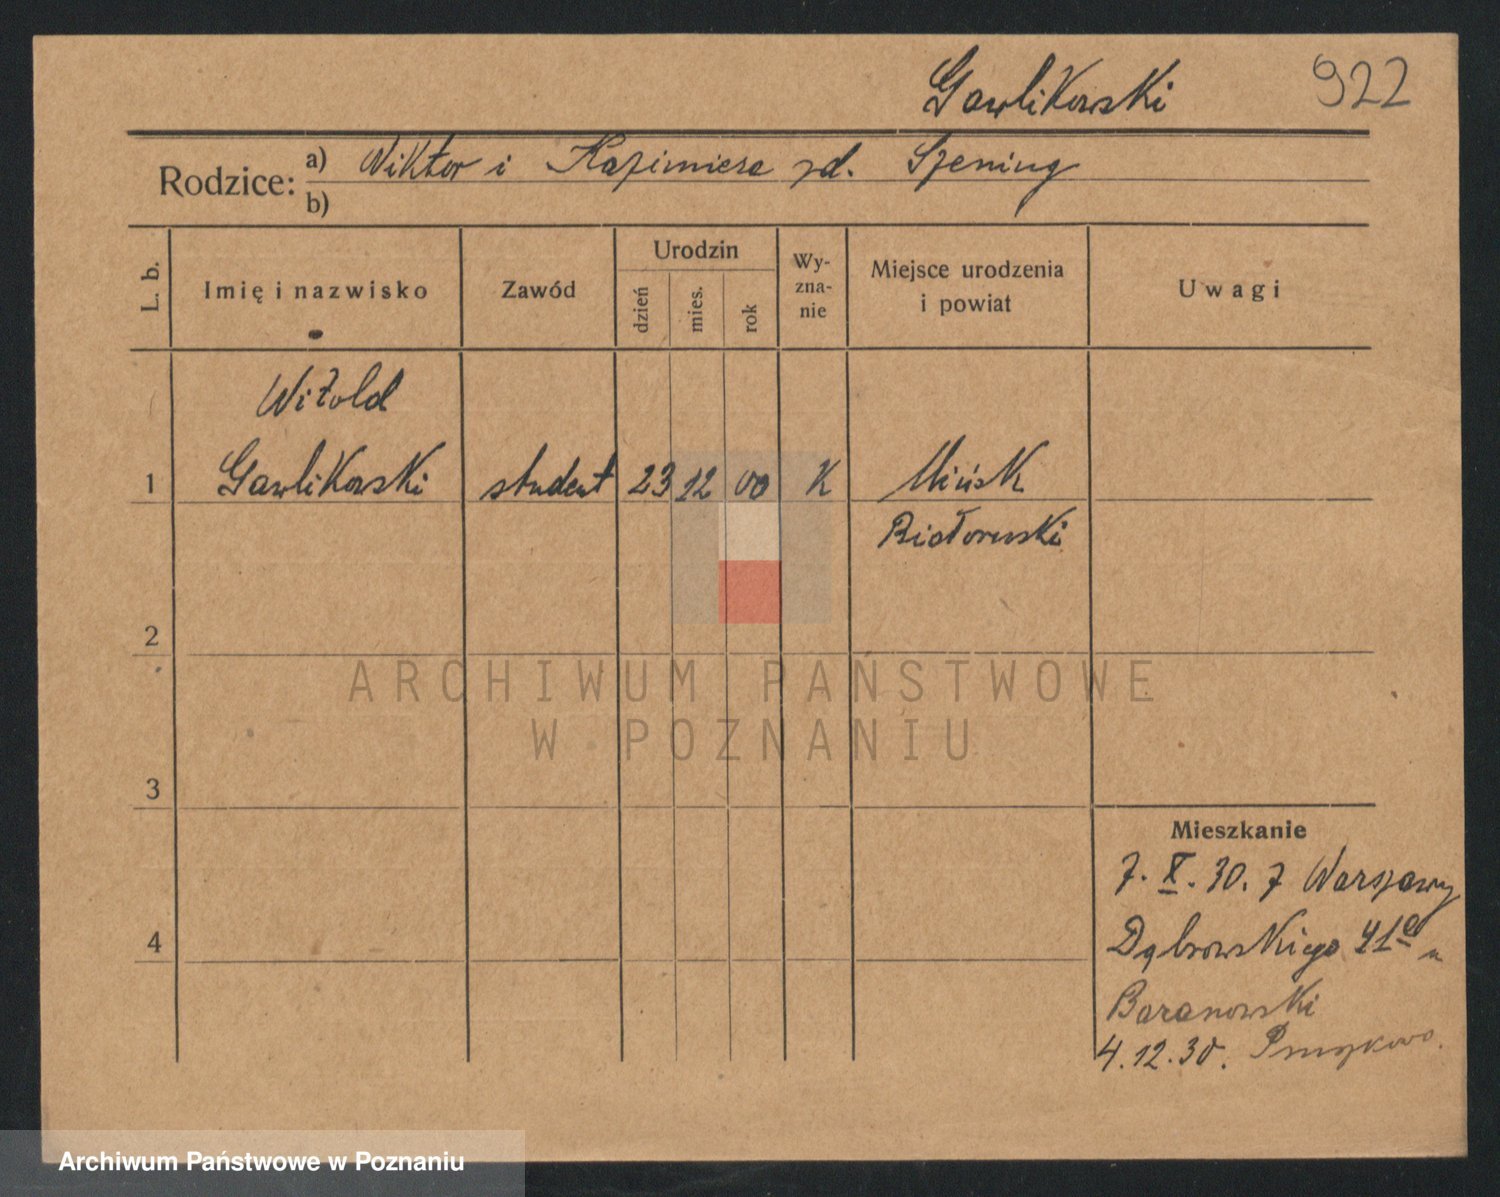 Gawlikowski 922
Rodzice: a) Wiktor i Kazimiera zd. Szening
b)
L. b. Imię i nazwisko Zawód Urodzin dzień mies. rok Wy-zna-nie Miejsce urodzenia i powiat Uwagi
Witold
1 Gawlikowski student 23 12 00 K Mińsk
Białoruski
2
3
4
Mieszkanie
7. X. 30. z Warszawy
Dąbrowskiego 41a u
Baranowski
4.12.30.
ARCHIWUM PAŃSTWOWE
W POZNANIU
Archiwum Państwowe w Poznaniu